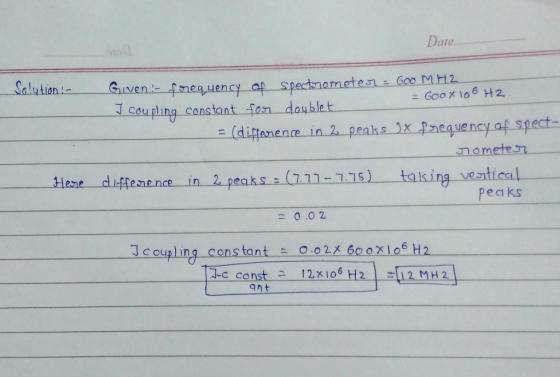 Date
Solution:- Given:- frequency of spectrometer = 600 MHz
= 600×10⁶ Hz
J coupling constant for doublet
= (difference in 2 peaks) × frequency of spect-
rometer
Here difference in 2 peaks = (7.77 - 7.75) taking vertical
peaks
= 0.02
J coupling constant = 0.02 × 600×10⁶ Hz
J-c const = 12×10⁶ Hz = 12 MHz
ant